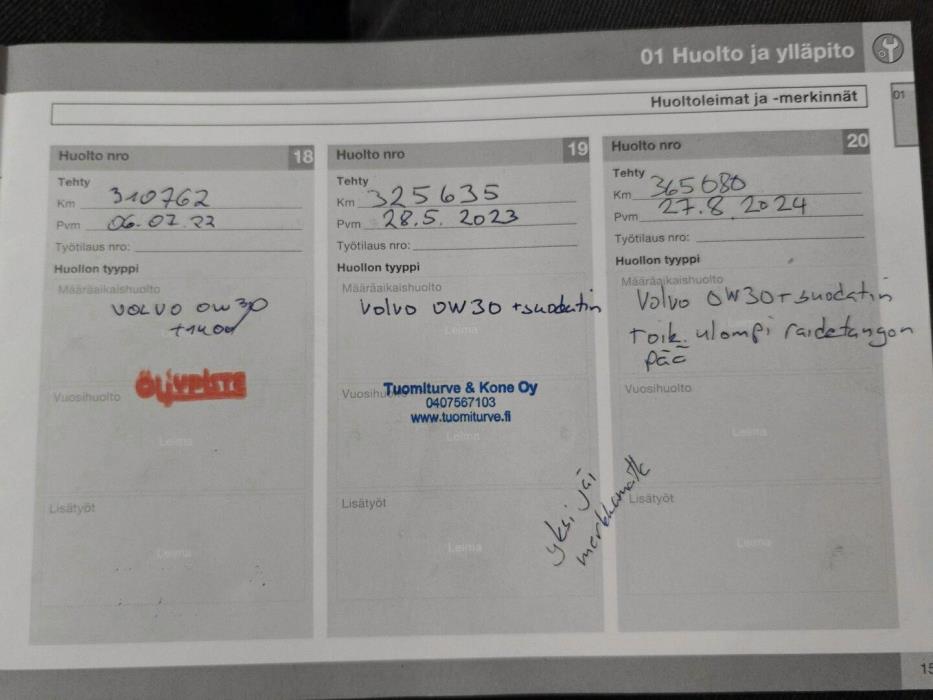 01 Huolto ja ylläpito
Huoltoleimat ja -merkinnät
01
Huolto nro 18
Tehty
Km 310762
Pvm 06.07.22
Työtilaus nro:
Huollon tyyppi
Määräaikaishuolto
VOLVO 0W30
Vuosihuolto
ÖLJYPISTE
Leima
Lisätyöt
Leima
Huolto nro 19
Tehty
Km 325635
Pvm 28.5. 2023
Työtilaus nro:
Huollon tyyppi
Määräaikaishuolto
Volvo 0W30 +suodatin
Leima
Vuosihuolto
Tuomiturve & Kone Oy
0407567103
www.tuomiturve.fi
Leima
Lisätyöt
Leima
yksi jäi
merkkamatta
Huolto nro 20
Tehty
Km 365080
Pvm 27.8.2024
Työtilaus nro:
Huollon tyyppi
Määräaikaishuolto
Volvo 0W30 + suodatin
roik. ulompi raidetangon
pää
Vuosihuolto
Leima
Lisätyöt
Leima
15